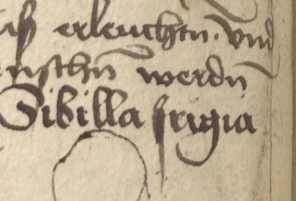 erleuchtn. vnd
werdn
Sibilla frigia